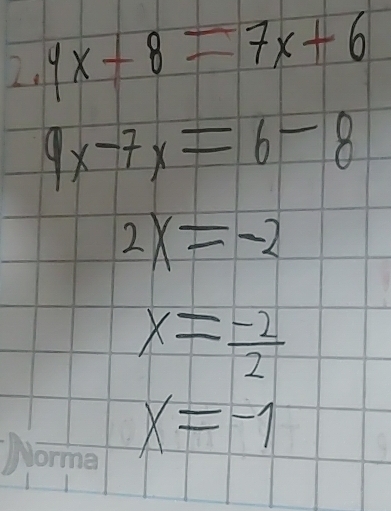 2. 9x + 8 = 7x + 6
9x - 7x = 6 - 8
2x = -2
x = -2/2
x = -1
Norma